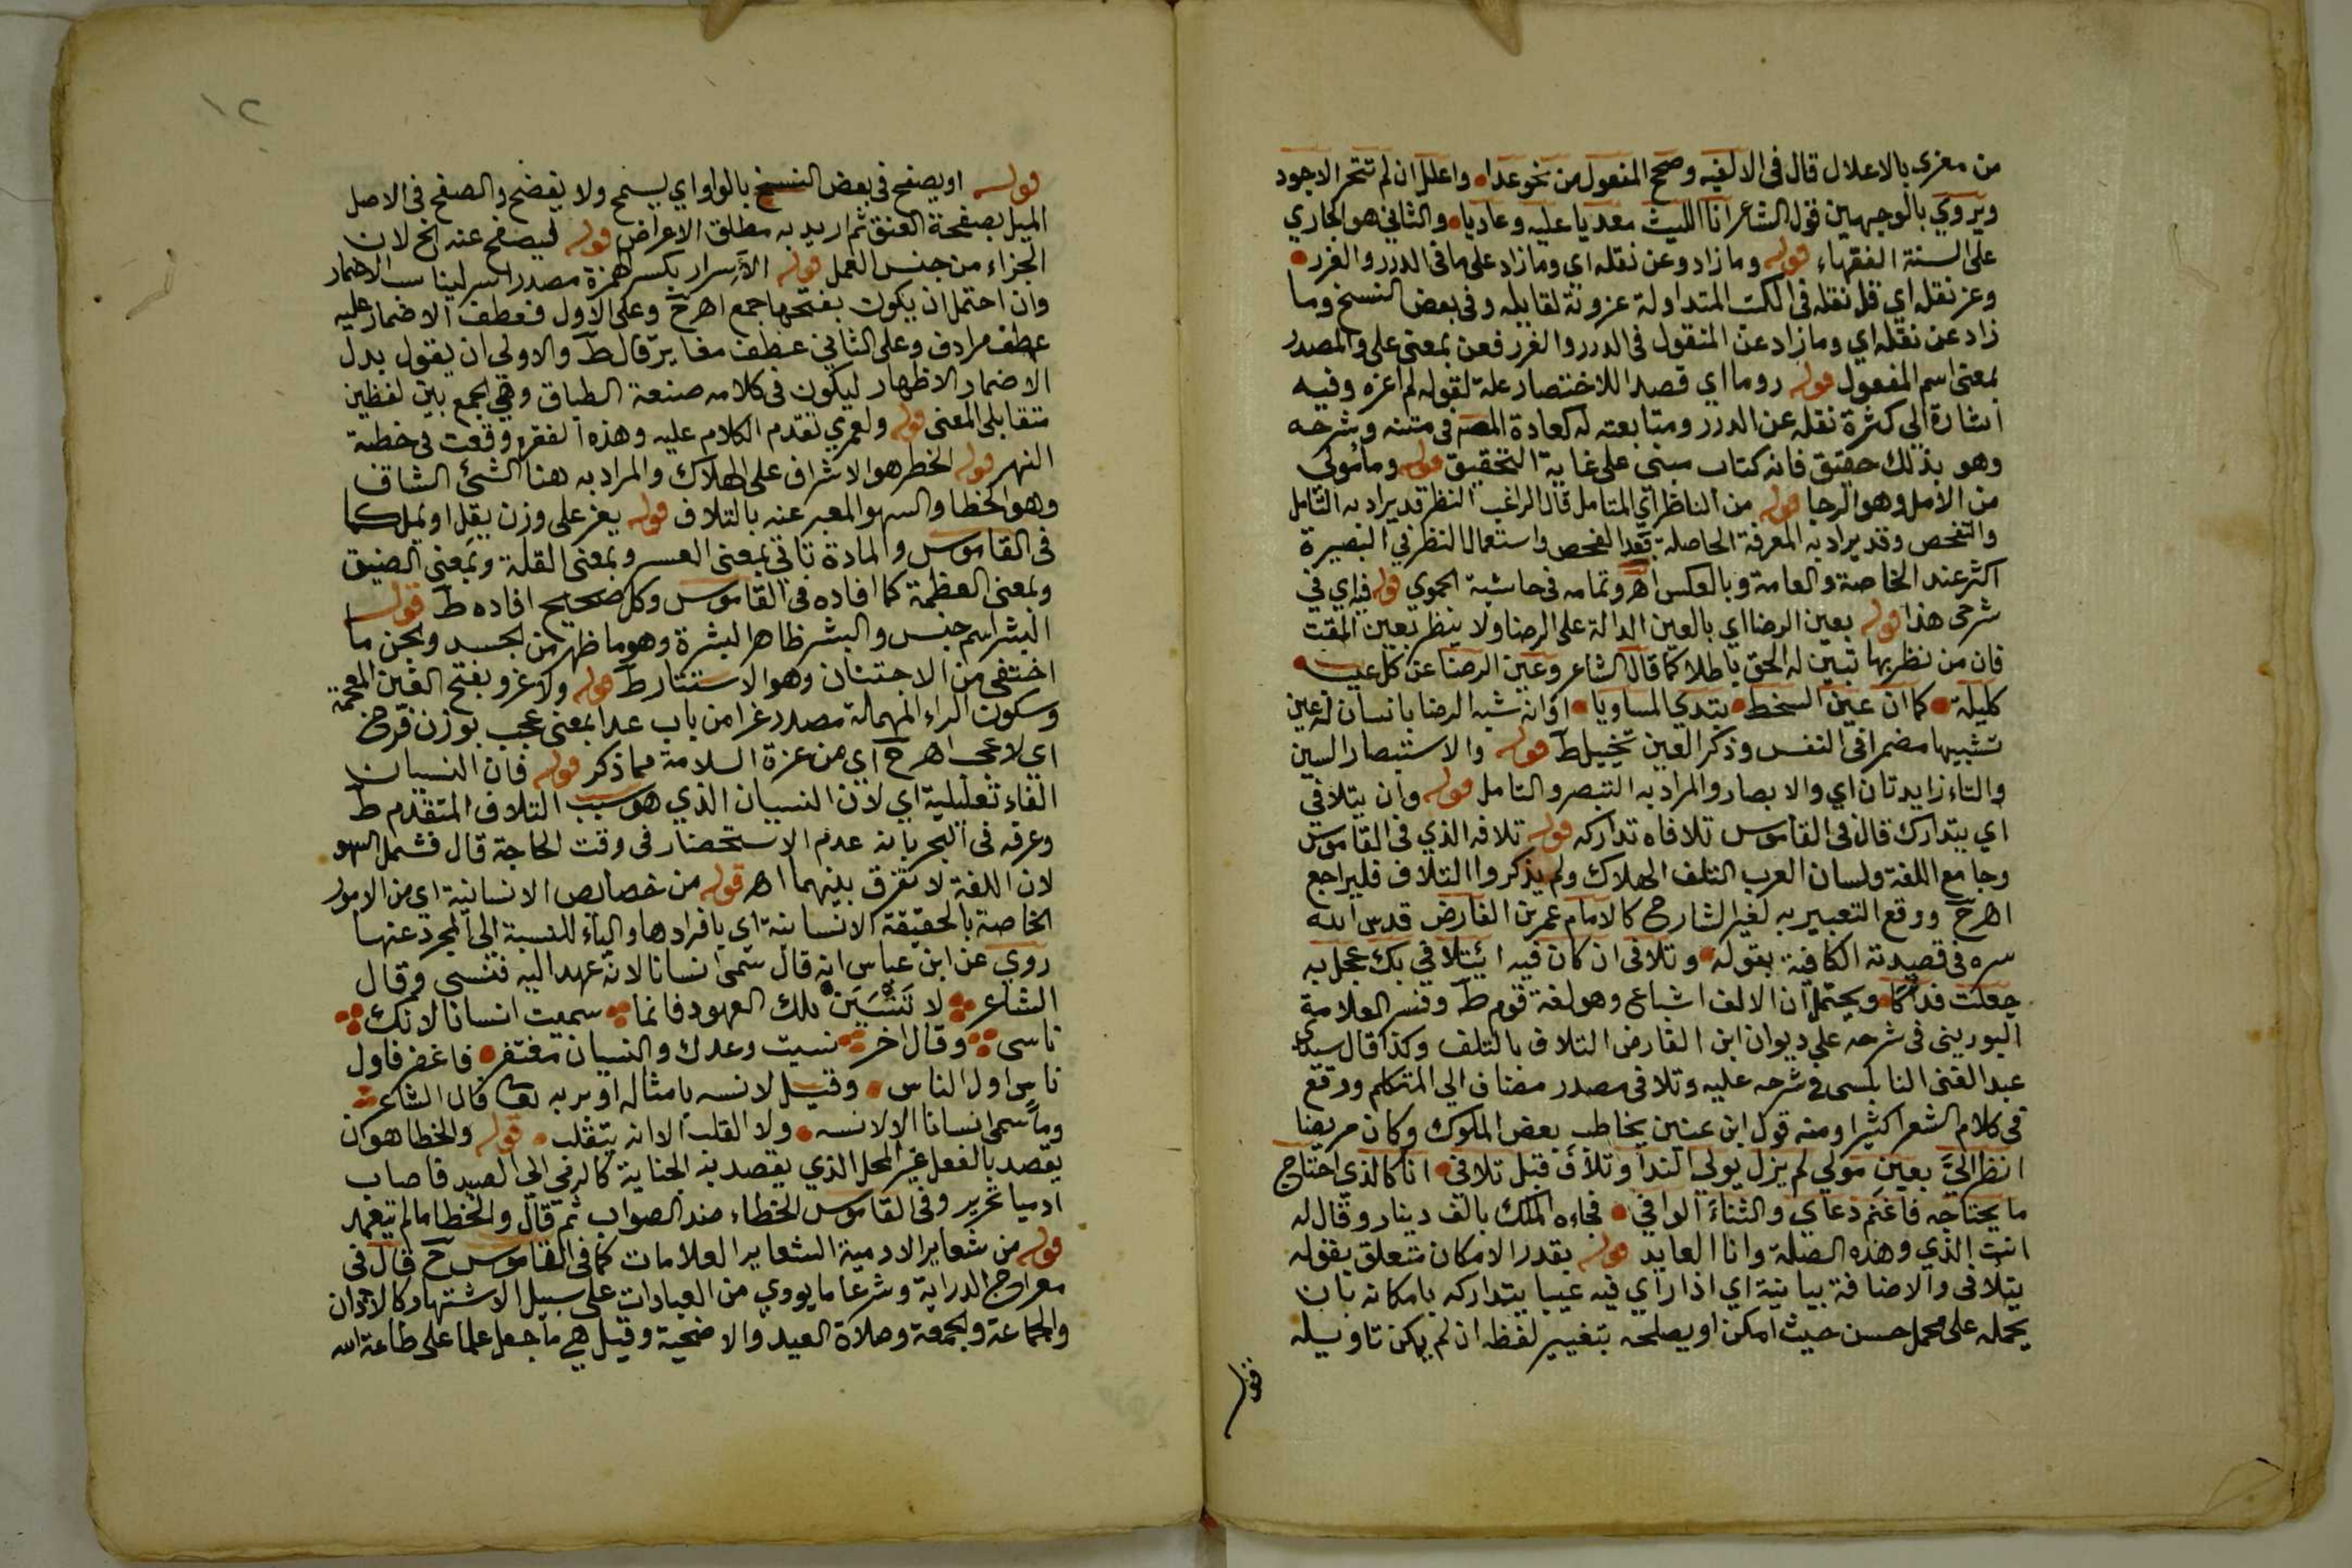 من مغزى بالاعلال قال في الالفيه وصحح المفعول من نحو عدا واعلل ان لم تتحر الاجود
ويروي بالوجهين قول الشاعر انا الليث معديا عليه وعاديا والثاني هو الجاري
على السنة الفقهاء قوله وما زاد وعن نقله اي وما زاد على ما في الدرر والغرر
وعز نقله اي قل نقله في الكتب المتداولة عزونة لقايله وفي بعض النسخ وما
زاد عن نقله اي وما زاد عن المنقول في الدرر والغرر فعن بمعنى على والمصدر
بمعنى اسم المفعول قوله روما اي قصدا للاختصار علة لقوله لم اعزه وفيه
اشارة الي كثرة نقله عن الدرر ومتابعته له كعادة المصـ في متنه وشرحه
وهو بذلك حقيق فانه كتاب مبني على غاية التحقيق قوله ومأمولي
من الامل وهو الرجا قوله من الناظر اي المتامل قال الراغب النظر قد يراد به التامل
والتفحص وقد يراد به المعرفة الحاصلة بعد الفحص واستعمال النظر في البصيرة
اكثر عند الخاصة والعامة وبالعكس اهـ وتمامه في حاشية الحموي قوله فيه اي في
شرحي هذا قوله بعين الرضا اي بالعين الدالة على الرضا ولا ينظر بعين المقت
فان من نظر بها تبين له الحق باطلا كما قال الشاعر وعين الرضا عن كل عيب
كليلة كما ان عين السخط تبدي المساويا او انه شبه الرضا بانسان له عين
تشبيها مضمرا في النفس وذكر العين تخييل ط قوله والاستبصار السين
والتاء زايدتان اي والابصار والمراد به التبصر والتامل قوله وان يتلافي
اي يتدارك قال في القاموس تلافاه تداركه قوله تلافه الذي في القاموس
وجامع اللغة ولسان العرب التلف الهلاك ولم يذكروا التلاف فليراجع
اهـ ح ووقع التعبير به لغير الشارح كالامام عمر بن الفارض قدس الله
سره في قصيدته الكافية بقوله وتلافى ان كان فيه ائتلافي بك عجل به
جعلت فداكا ويحتمل ان الالف اشباع وهو لغة قوم ط وفسر العلامة
البوريني في شرحه على ديوان ابن الفارض التلاف بالتلف وكذا قال سيدي
عبد الغني النابلسي في شرحه عليه وتلافي مصدر مضاف الي المتكلم ووقع
في كلام الشعرا كثيرا ومنه قول ابن عنين يخاطب بعض الملوك وكان مريضا
انظر اليَّ بعين مولي لم يزل يولي الندا وتلاف قبل تلافي انا كالذي احتاج
ما يحتاجه فاغنم دعاي والثناء الوافي فجاءه الملك بالف دينار وقال له
انت الذي وهذه الصلة وانا العايد قوله بقدر الامكان متعلق بقوله
يتلافى والاضافة بيانية اي اذا راي فيه عيبا يتداركه بامكانه بان
يحمله على محمل حسن حيث امكن او يصلحه بتغيير لفظه ان لم يمكن تاويله
قوله
١٢
قوله او يصفح في بعض النسخ بالواو اي يسمح ولا يفضح والصفح في الاصل
الميل بصفحة العنق ثم اريد به مطلق الاعراض قوله ليصفح عنه الخ لان
الجزاء من جنس العمل قوله الاِسرار بكسر الهمزة مصدر اسر ليناسب الاضمار
وان احتمل ان يكون بفتحها جمع اهـ ح وعلى الاول فعطف الاضمار عليه
عطف مرادف وعلى الثاني عطف مغاير قال ط والاولي ان يقول بدل
الاضمار الاظهار ليكون في كلامه صنعة الطباق وهي الجمع بين لفظين
متقابلي المعنى قوله ولعمري تقدم الكلام عليه وهذه الفقره وقعت في خطبة
النهر قوله الخطر هو الاشراف على الهلاك والمراد به هنا الشئ الشاق
وهو الخطا والسهو المعبر عنه بالتلاف قوله يعز على وزن يقل او يمل كما
في القاموس والمادة تاتي بمعنى العسر وبمعنى القلة وبمعني الضيق
وبمعني العظمة كما افاده في القاموس وكل صحيح افاده ط قوله
البشر اسم جنس والبشر ظاهر البشرة وهو ما ظهر من الجسد والجن ما
اختفى من الاجتنان وهو الاستتار ط قوله ولا غرو بفتح الغين المعجمة
وسكون الراء المهملة مصدر غرا من باب عدا بمعنى عجب بوزن فرح
اي لا عجب اهـ ح اي من عزة السلامة مما ذكر قوله فان النسيان
الفاء تعليلية اي لان النسيان الذي هو سبب التلاف المتقدم ط
وعرفه في البحر بانه عدم الاستحضار في وقت الحاجة قال فشمل السهو
لان اللغة لا تفرق بينهما اهـ قوله من خصايص الانسانية اي من الامور
الخاصة بالحقيقة الانسانية اي بافرادها والياء للنسبة الى المجرد عنها
روي عن ابن عباس انه قال سمي انسانا لانه عهد اليه فنسي وقال
الشاعر لا تَنْسَيَن تلك العهود فانما سميت انسانا لانك
ناسى وقال اخر نسيت وعدك والنسيان مغتفر فاغفر فاول
ناس اول الناس وقيل لانسه بامثاله او بربه تعا قال الشاعر
وما سمي انسانا الا لانسه ولا القلب الا انه يتقلب قوله والخطا هو ان
يقصد بالفعل غير المحل الذي يقصد به الجناية كالرمي الي الصيد فاصاب
ادميا تحرير وفي القاموس الخطاء ضد الصواب ثم قال والخطا ما لم يتعمد
قوله من شعاير الادمية الشعاير العلامات كما في القاموس ح قال في
معراج الدراية وشرعا ما يودي من العبادات على سبيل الاشتهار كالاذان
والجماعة والجمعة وصلاة العيد والاضحية وقيل هي ما جعل علما على طاعة الله